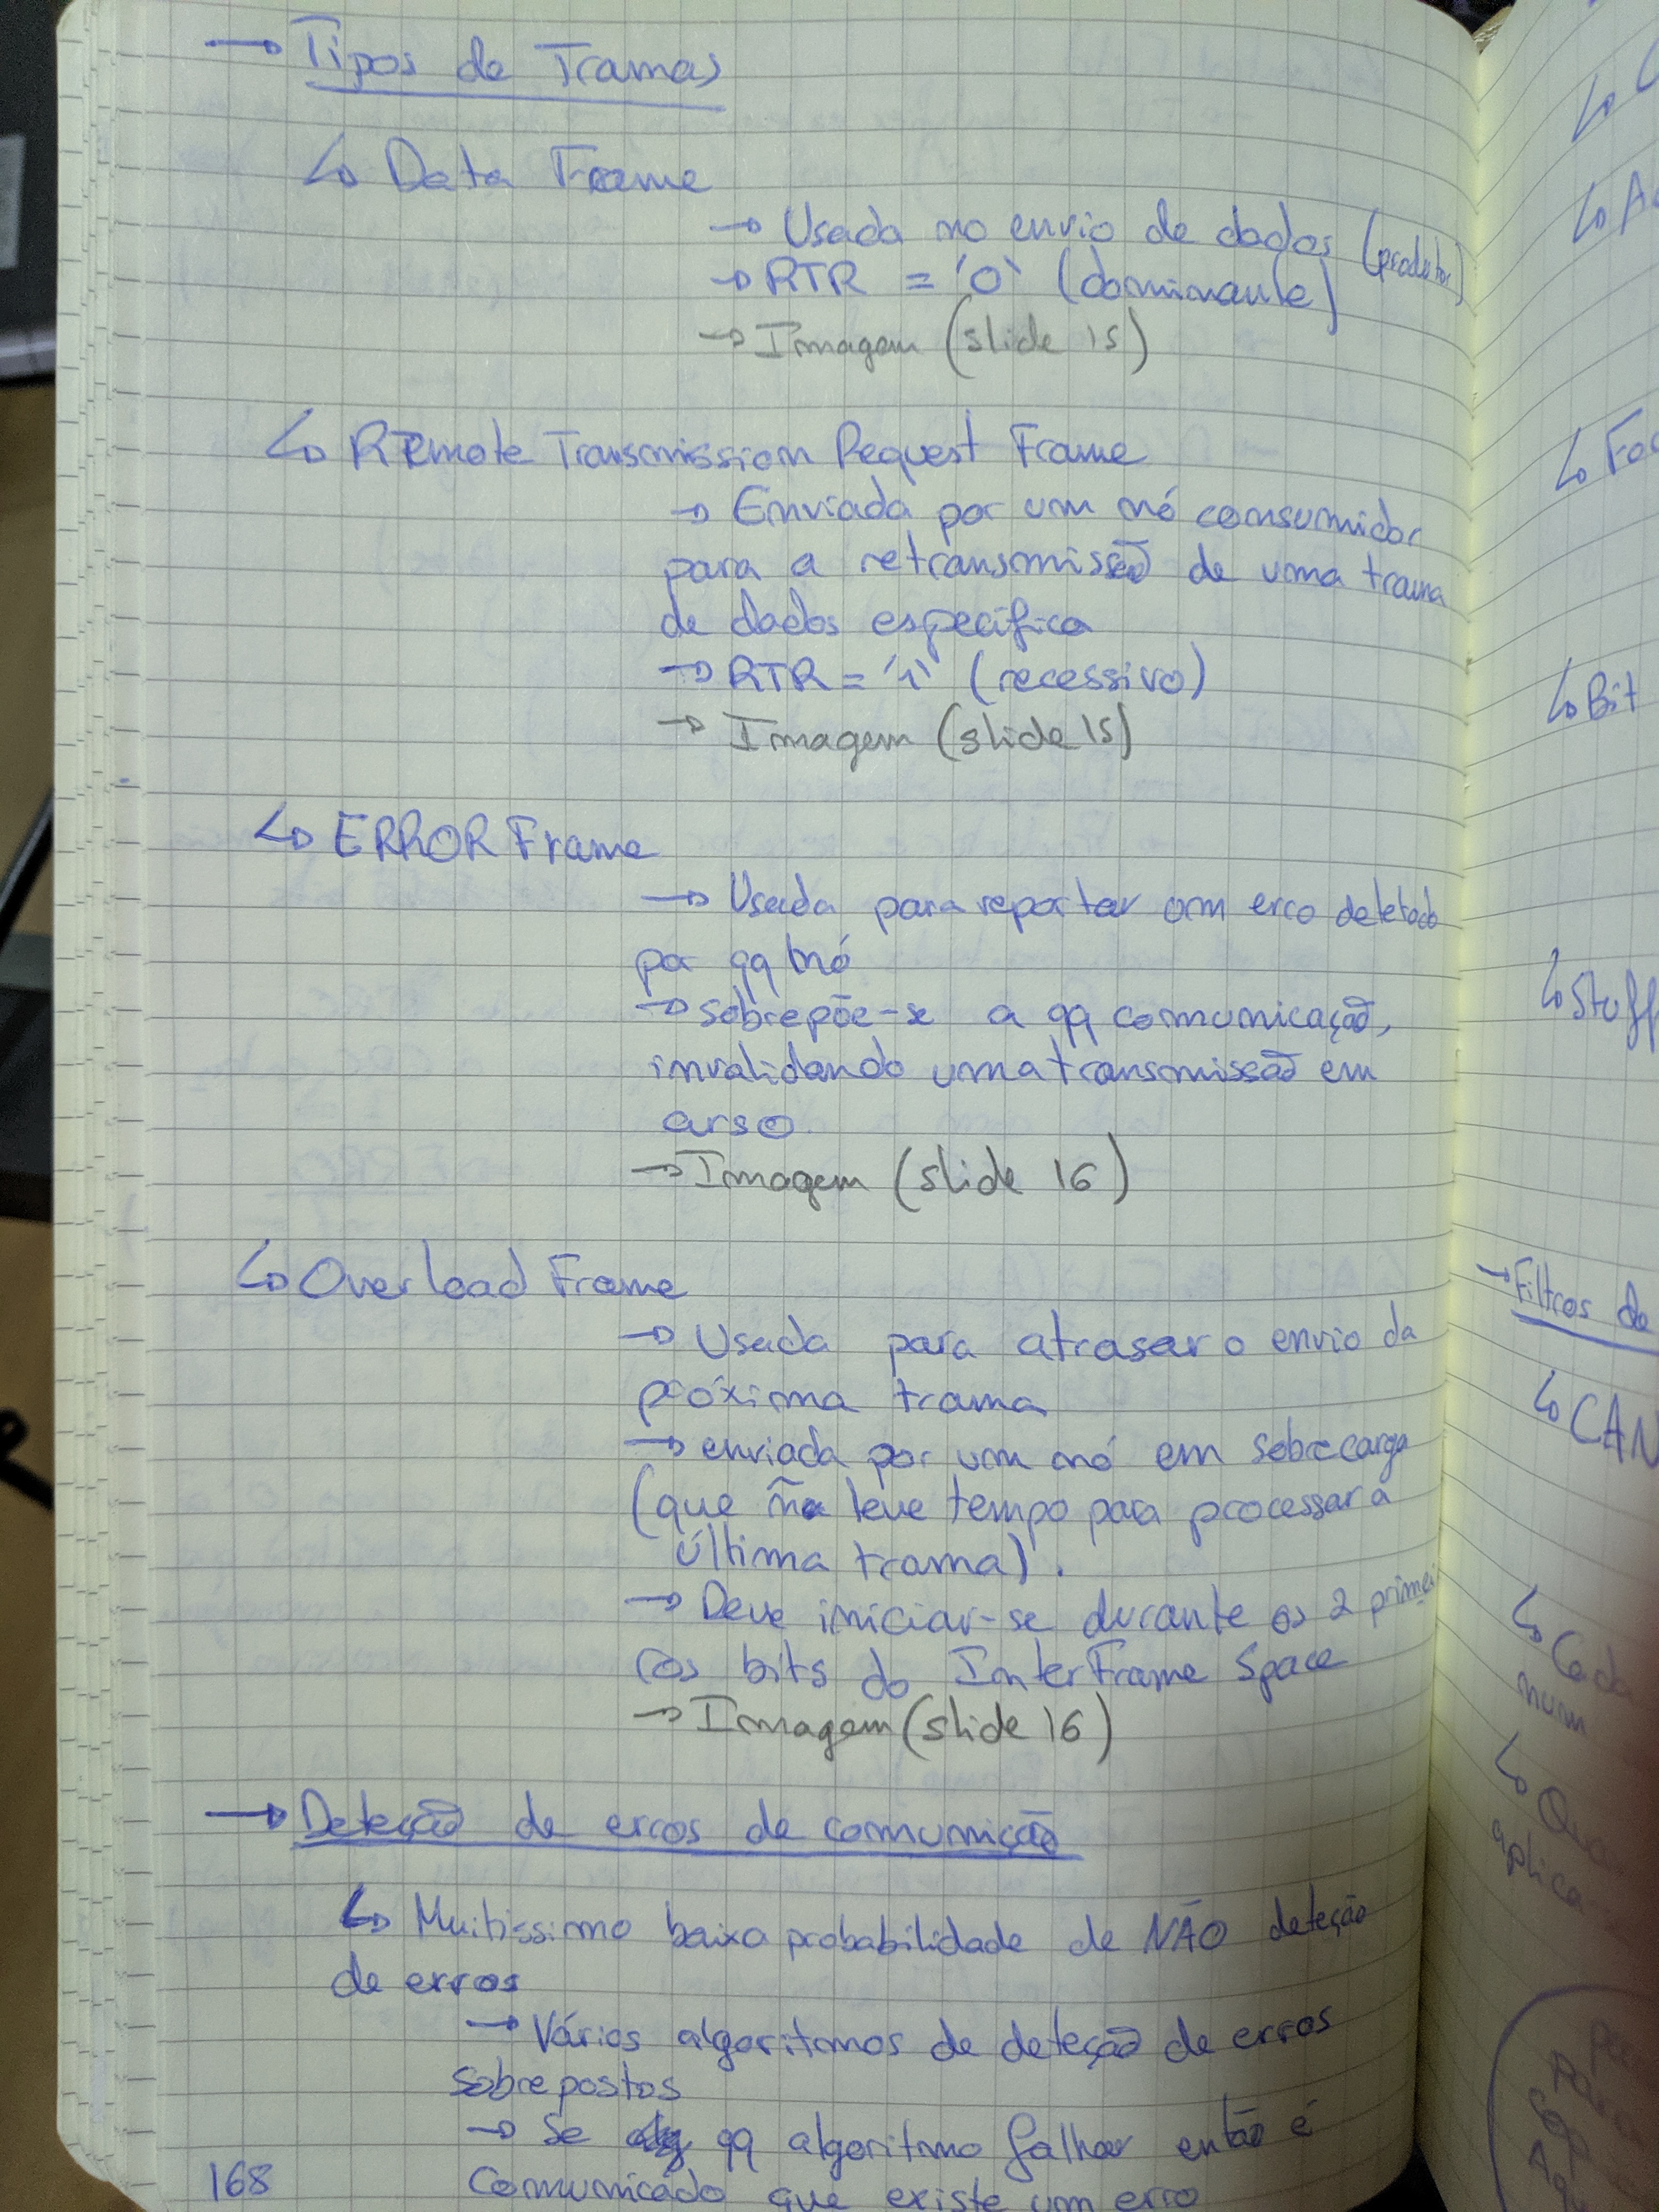 → Tipos de Tramas
↳ Data Frame
→ Usada no envio de dados (produtor)
→ RTR = '0' (dominante)
→ Imagem (slide 15)
↳ Remote Transmission Request Frame
→ Enviada por um nó consumidor
para a retransmissão de uma trama
de dados especifica
→ RTR = '1' (recessivo)
→ Imagem (slide 15)
↳ ERROR Frame
→ Usada para reportar um erro detetado
por qq nó
→ sobrepõe-se a qq comunicação,
invalidando uma transmissão em
curso
→ Imagem (slide 16)
↳ Overload Frame
→ Usada para atrasar o envio da
próxima trama
→ enviada por um nó em sobrecarga
(que ñ teve tempo para processar a
última trama).
→ Deve iniciar-se durante os 2 primei
ros bits do InterFrame Space
→ Imagem (slide 16)
→ Deteção de erros de comunicão
↳ Muitissimo baixa probabilidade de NÃO deteção
de erros
→ Vários algoritmos de deteção de erros
sobrepostos
→ Se qq algoritmo falhar então é
comunicado que existe um erro
168
↳ Bit
→ Filtros de
↳ CAN
↳ Cada
num
aplica